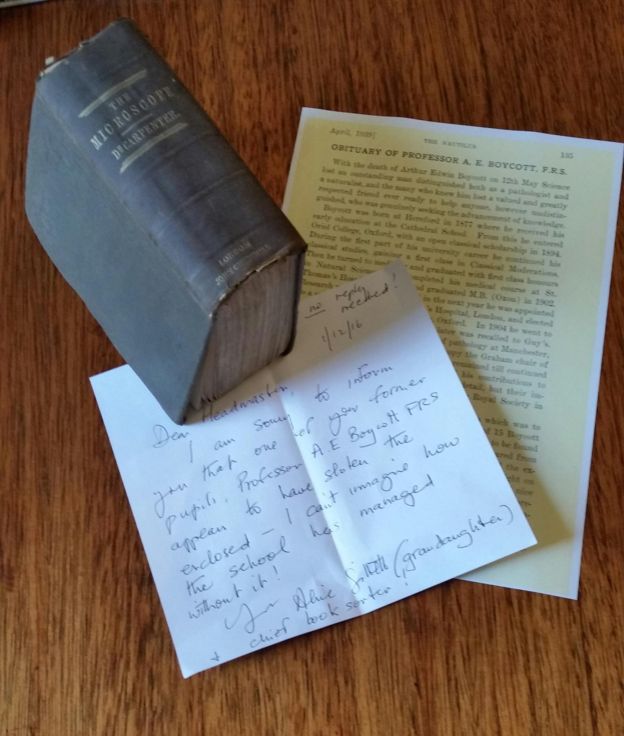 THE
MICROSCOPE
DR CARPENTER.
LONDON
April, 1939]
THE NAUTILUS
135
OBITUARY OF PROFESSOR A. E. BOYCOTT, F.R.S.
With the death of Arthur Edwin Boycott on 12th May Science
lost an outstanding man distinguished both as a pathologist and
a naturalist, and the many who knew him lost a valued and greatly
respected friend ever ready to help anyone, however undistin-
guished, who was genuinely seeking the advancement of knowledge.
Boycott was born at Hereford in 1877 where he received his
early education at the Cathedral School. From this he entered
Oriel College, Oxford, with an open classical scholarship in 1894.
During the first part of his university career he continued his
classical studies, gaining a first class in Classical Moderations.
Then he turned to
Natural and graduated with first class honours
Thomas's completed his medical course at St.
research graduated M.B. (Oxon) in 1902.
in the next year he was appointed
Hospital, London, and elected
Oxford. In 1904 he went to
later was recalled to Guy's.
of pathology at Manchester,
the Graham chair of
remained till continued
his contributions to
detail; but their im-
Royal Society in
which was to
of 15 Boycott
to be found
from
the ex-
on
nice
no reply
needed!
1/12/16
Dear Headmaster
I am sorry to inform
you that one of your former
pupils, Professor A.E Boycott FRS
appears to have stolen the
enclosed – I can't imagine how
the school has managed
without it!
Alice (grandaughter)
+ chief book sorter!